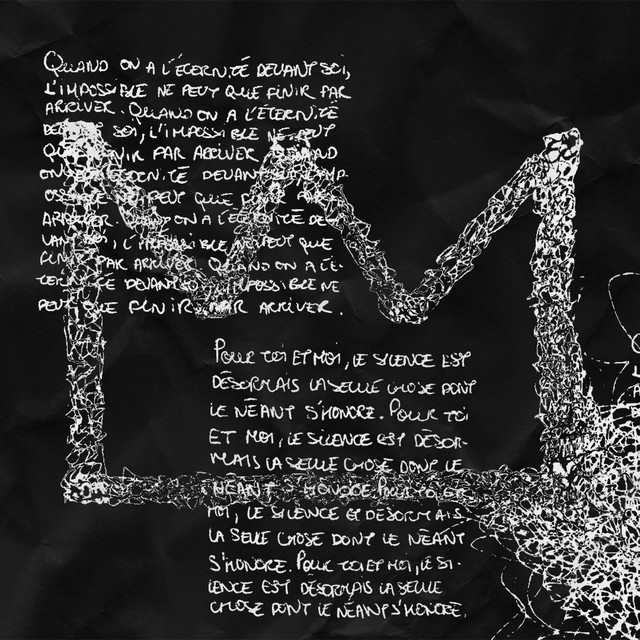 QUAND ON A L'ÉTERNITÉ DEVANT SOI,
L'IMPOSSIBLE NE PEUT QUE FINIR PAR
ARRIVER. QUAND ON A L'ÉTERNITÉ
SOI, L'IMPOSSIBLE NE PEUT
PAR ARRIVER
DEVANT
PEUT QUE
ON A L'ÉTERNITÉ DE-
VANT SOI, L'IMPOSSIBLE NE PEUT QUE
FINIR PAR ARRIVER. QUAND ON A L'É-
TERNITÉ DEVANT SOI, L'IMPOSSIBLE NE
PEUT QUE FINIR PAR ARRIVER.
POUR TOI ET MOI, LE SILENCE EST
DÉSORMAIS LA SEULE CHOSE DONT
LE NÉANT S'HONORE. POUR TOI
ET MOI, LE SILENCE EST DÉSOR-
MAIS LA SEULE CHOSE DONT LE
NÉANT S'HONORE. POUR TOI ET
MOI, LE SILENCE EST DÉSORMAIS
LA SEULE CHOSE DONT LE NÉANT
S'HONORE. POUR TOI ET MOI, LE SI-
LENCE EST DÉSORMAIS LA SEULE
CHOSE DONT LE NÉANT S'HONORE.